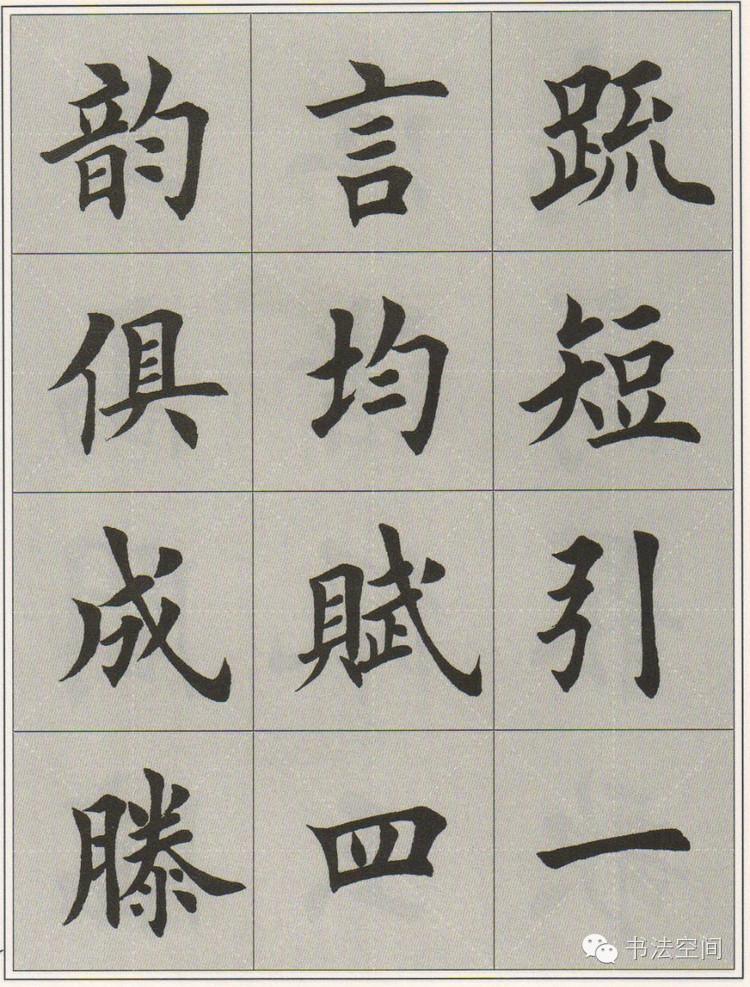 疏短引一
言均賦四
韵俱成滕
书法空间